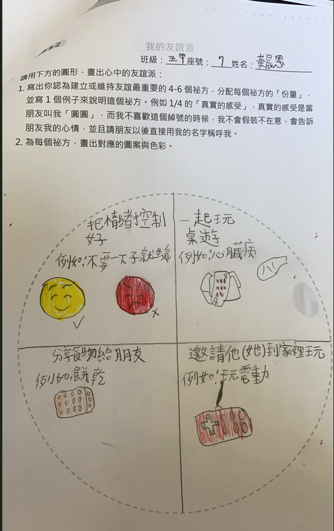 我的友誼派
班級：五甲 座號：7 姓名：
請用下方的圓形，畫出心中的友誼派：
1. 寫出你認為建立或維持友誼最重要的 4-6 個祕方，分配每個祕方的「份量」，
並寫 1 個例子來說明這個祕方。例如 1/4 的「真實的感受」，真實的感受是當
朋友叫我「圓圓」，而我不喜歡這個綽號的時候，我不會假裝不在意，會告訴
朋友我的心情，並且請朋友以後直接用我的名字稱呼我。
2. 為每個祕方，畫出對應的圖案與色彩。
把情緒控制
好
例如：不要一下子就
一起玩
桌遊
例如：心臟病
分享食物給朋友
例如：餅乾
邀請他(她)到家裡玩
例如：玩電動